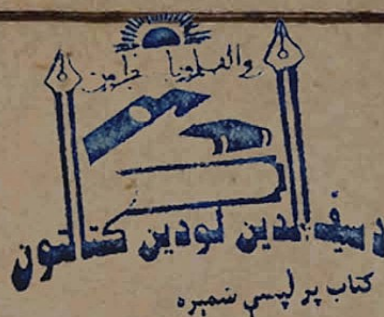 والقلم وما یسطرون
د سیف الدین لودین کتابتون
کتاب پرلپسې شمېره